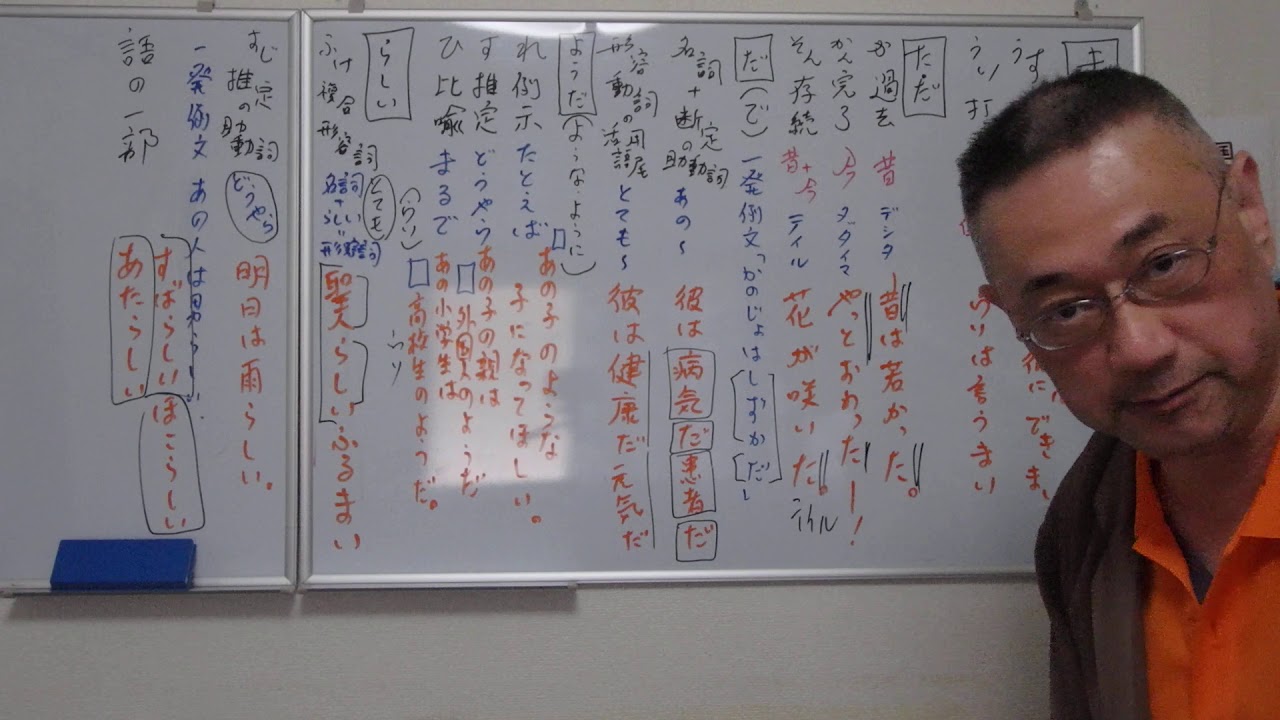 ま
うす
うい 打
けりは言うまい
ただ
か 過去 昔 デシタ 昔は若かった。
かん 完了 今 タダイマ やっとおわったー!
そん 存続 昔+今 テイル 花が咲いた。
テイル
だ (で) 一発例文「かのじょはしずかだ」
名詞+断定の助動詞 あの〜 彼は病気だ 患者だ
形容動詞の活用語尾 とても〜 彼は健康だ 元気だ
ようだ (ような・ように)
れ 例示 たとえば あの子のような子になってほしい。
す 推定 どうやら あの子の親は外国人のようだ
ひ 比喩 まるで あの小学生は高校生のようだ。
らしい (らい)
ふけ 複合形容詞 とても
名詞+らしい=形容詞 聖人らしいふるまい
すじ 推定の助動詞 どうやら 明日は雨らしい。
一発例文 あの人は男らしい.
語の一部 すばらしい ほこらしい
あたらしい